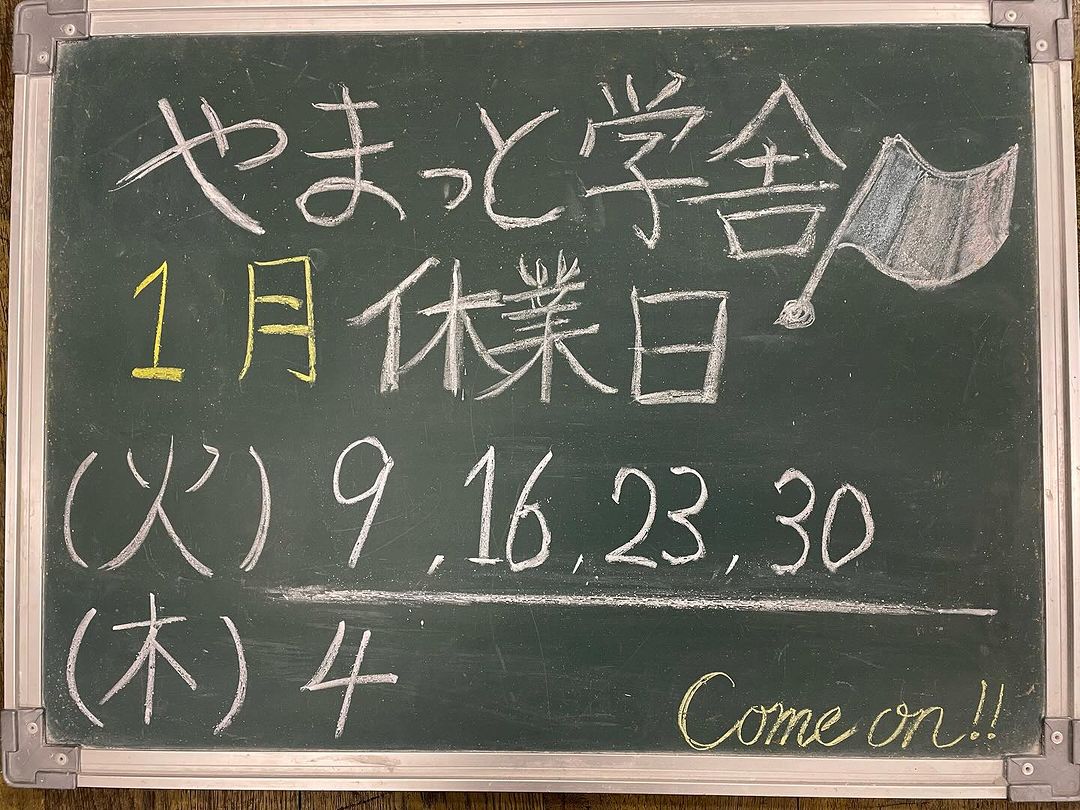 やまっと学舎
1月休業日
(火) 9, 16, 23, 30
(木) 4
Come on!!